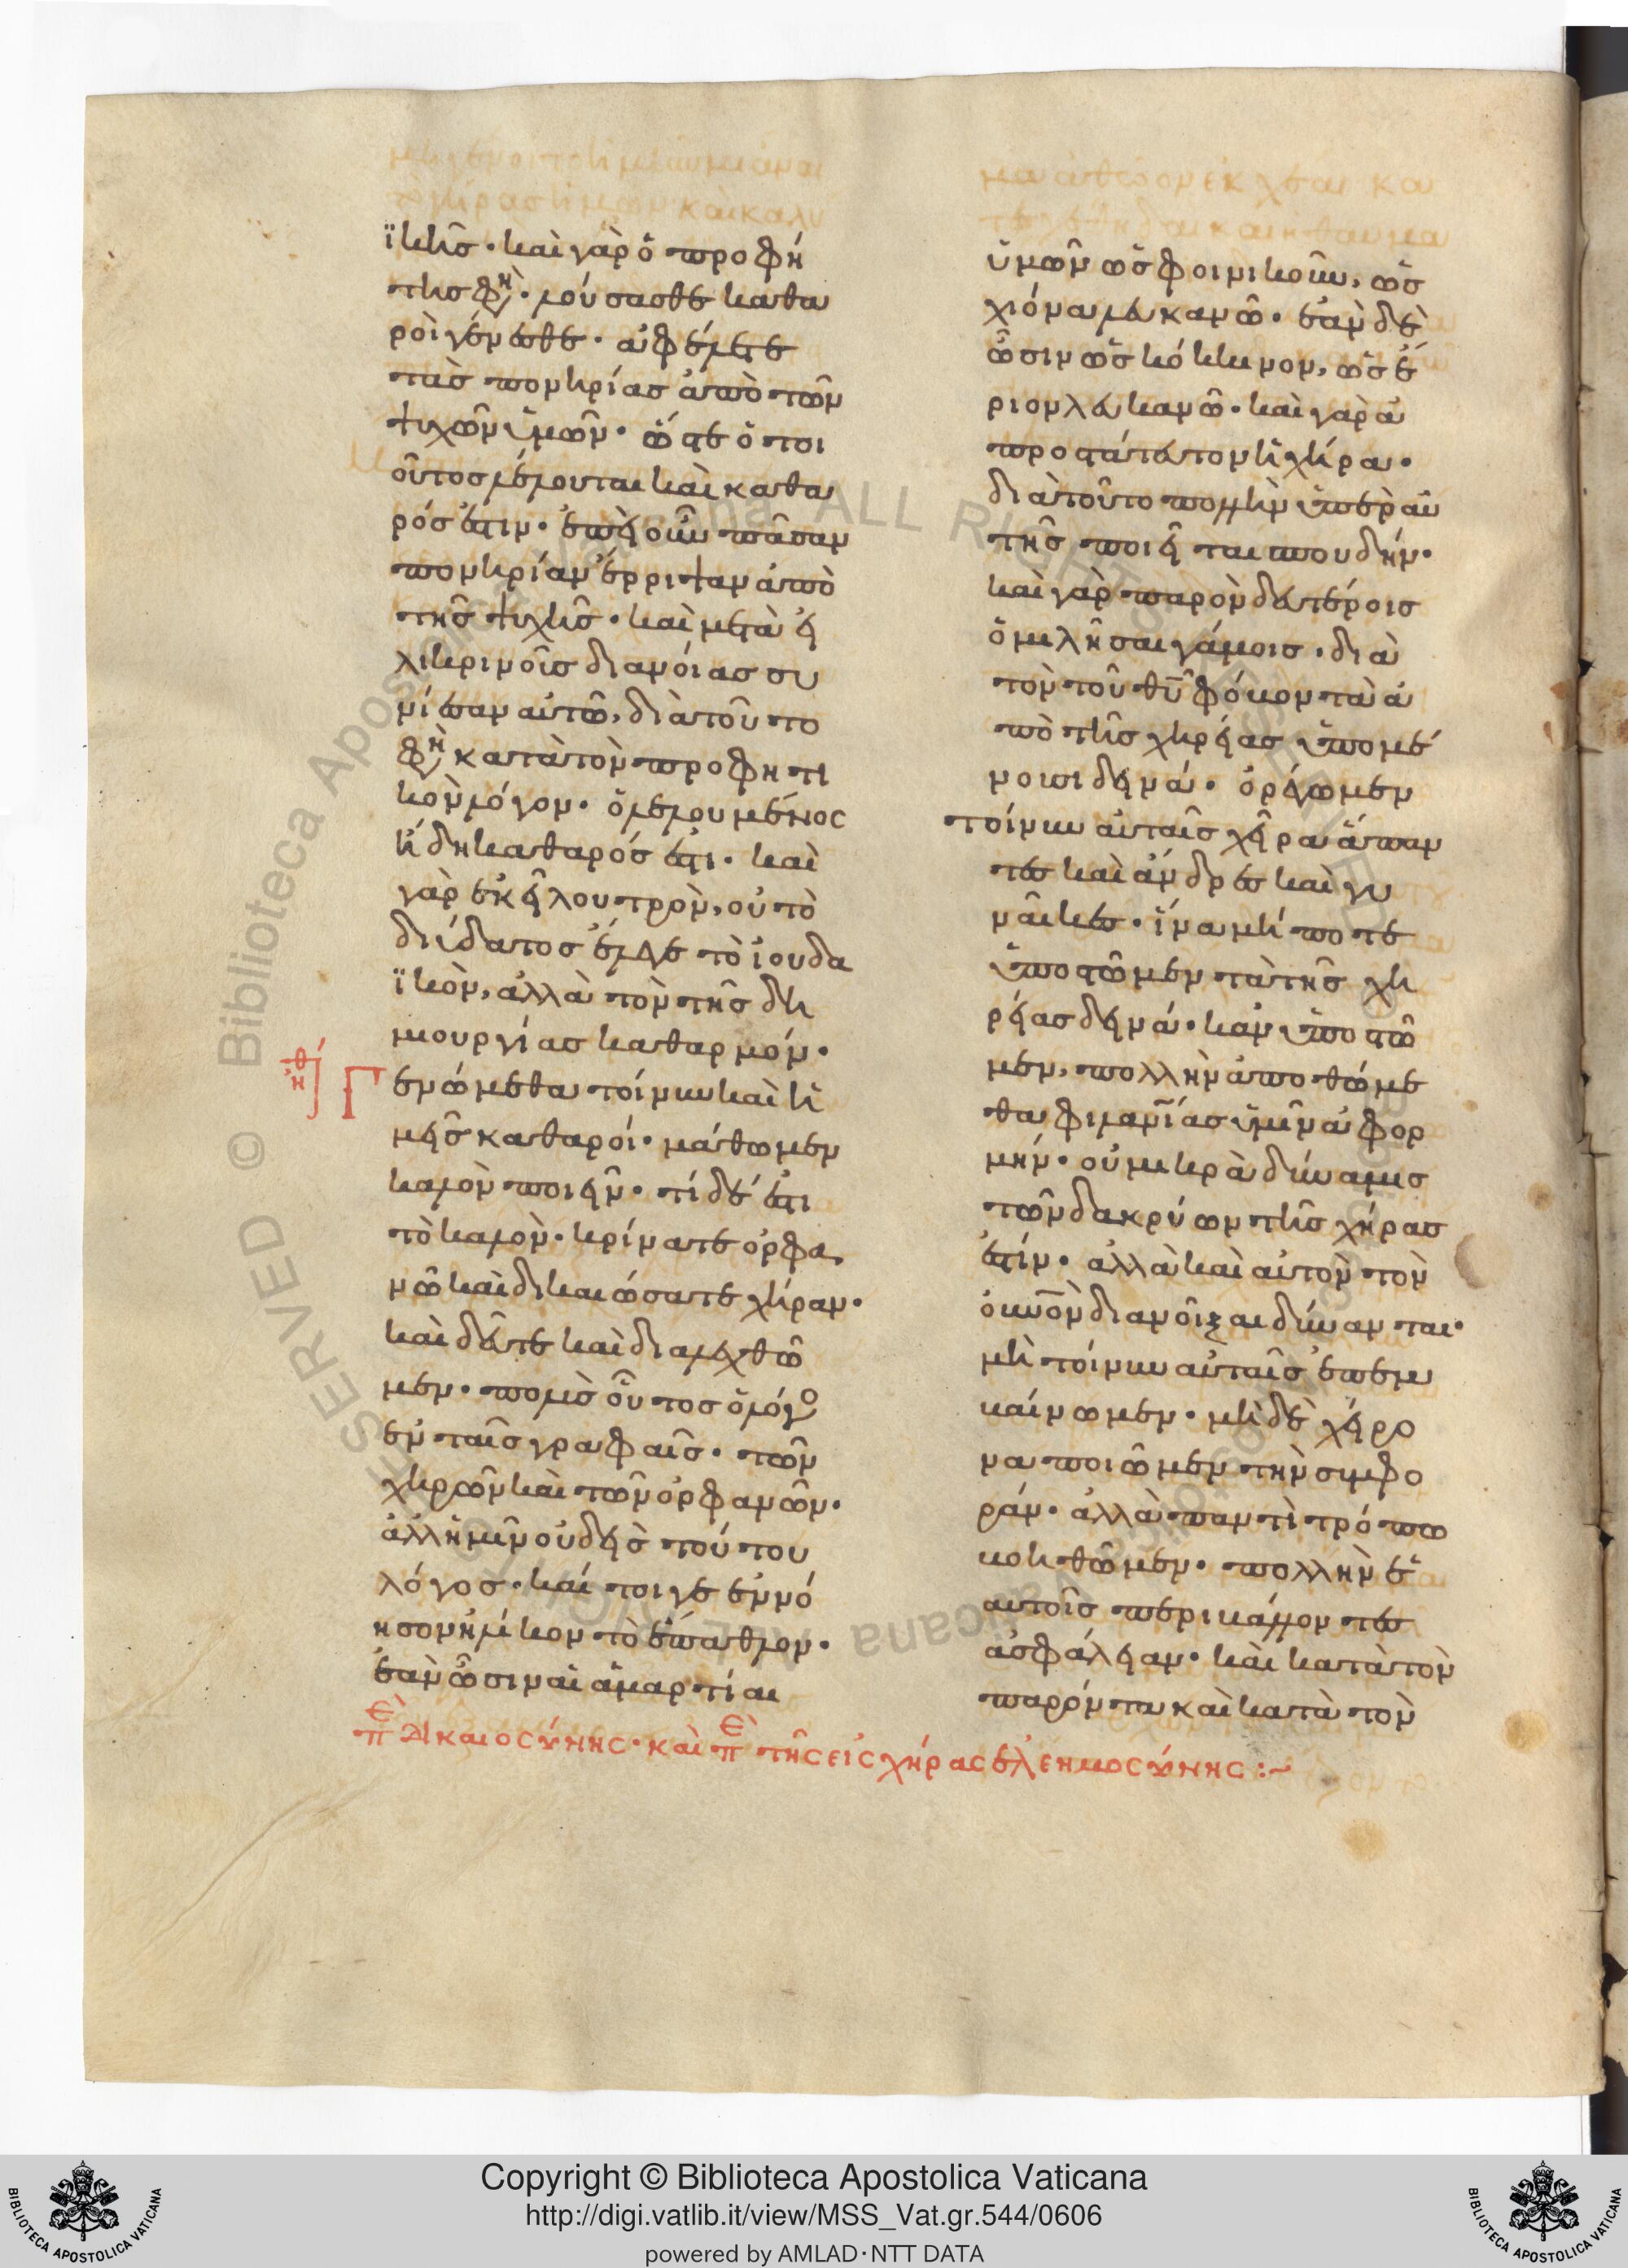 ϊκῆς· καὶ γὰρ ὁ προφή
της φη· λούσασθε καθα
ροὶ γένεσθε· ἀφέλετε
τὰς πονηρίας ἀπὸ τῶν
ψυχῶν ὑμῶν· ὥστε ὁ τοι
οῦτος λέλουται καὶ καθα
ρός ἐστιν· ἐπεὶ οὖν πᾶσαν
πονηρίαν ἔρριψαν ἀπὸ
τῆς ψυχῆς· καὶ μετὰ εἰ
λικρινοῖς διανοίας συ
νίεσαν αὐτῶ, διὰ τοῦτο
φη κατὰ τὸν προφητι
κὸν λόγον· ὁ λελουμένος
ἤδη καθαρός ἐστι· καὶ
γὰρ ἐκεῖ λουτρὸν, οὐ τὸ
δι' ὕδατος ἔλεγε τὸ ἰουδα
ϊκὸν, ἀλλὰ τὸν τῆς δη
μιουργίας καθαρμόν·
ηθ Γ ενώμεθα τοίνυν καὶ ἡ
μεῖς καθαροί· μάθωμεν
καλὸν ποιεῖν· τί δέ ἐστι
τὸ καλὸν· κρίνατε ὀρφα
νῶ καὶ δικαιώσατε χήραν·
καὶ δεῦτε καὶ διαλεχθῶ
μεν· πολὺς οὗτος ὁ λόγο
ἐν ταῖς γραφαῖς· τῶν
χηρῶν καὶ τῶν ὀρφανῶν·
ἀλλ' ἡμῖν οὐδεὶς τούτου
λόγος· καί τοιγε ἐννό
ησον ἡλίκον τὸ ἔπαθλον·
ἐὰν ὦσιν αἱ ἁμαρτίαι
ὑμῶν ὡς φοινικοῦν, ὡς
χιόνα λευκανῶ· ἐὰν δὲ
ὦσιν ὡς κόκκινον, ὡς ἔ
ριον λευκανῶ· καὶ γὰρ ἀ
προστάτευτον ἡ χήρα·
διὰ τοῦτο πολλὴν ὑπὲρ αὐ
τῆς ποιεῖται σπουδήν·
καὶ γὰρ παρὸν δευτέροις
ὁμιλῆσαι γάμοις· διὰ
τὸν τοῦ θυ φόβον τὰ ἀ
πὸ τῆς χηρείας ὑπομέ
νουσι δεινά· ὀρέξωμεν
τοίνυν αὐταῖς χεῖρα ἅπαν
τες καὶ ἄνδρες καὶ γυ
ναῖκες· ἵνα μή ποτε
ὑποστῶμεν τὰ τῆς χη
ρείας δεινά· κἂν ὑποστῶ
μεν, πολλὴν ἀποθώμε
θα φιλανίας ὑμῖν ἀφορ
μήν· οὐ μικρὰ δύναμις
τῶν δακρύων τῆς χήρας
ἐστίν· ἀλλὰ καὶ αὐτὸν τὸν
οὐνὸν διανοῖξαι δύναται·
μὴ τοίνυν αὐταῖς ἐπεμ
βαίνωμεν· μὴ δὲ χείρο
να ποιῶμεν τὴν συμφο
ράν· ἀλλὰ παντὶ τρόπω
βοηθῶμεν· πολλὴν ἑ
αυτοῖς περιβάλλοντες
ἀσφάλειαν· καὶ κατὰ τὸν
παρόντα καὶ κατὰ τὸν
πε δικαιοσύνης· καὶ πε τῆς εἰς χήρας ἐλεημοσύνης :~
Copyright © Biblioteca Apostolica Vaticana
http://digi.vatlib.it/view/MSS_Vat.gr.544/0606
powered by AMLAD·NTT DATA
BIBLIOTECA APOSTOLICA VATICANA
BIBLIOTECA APOSTOLICA VATICANA